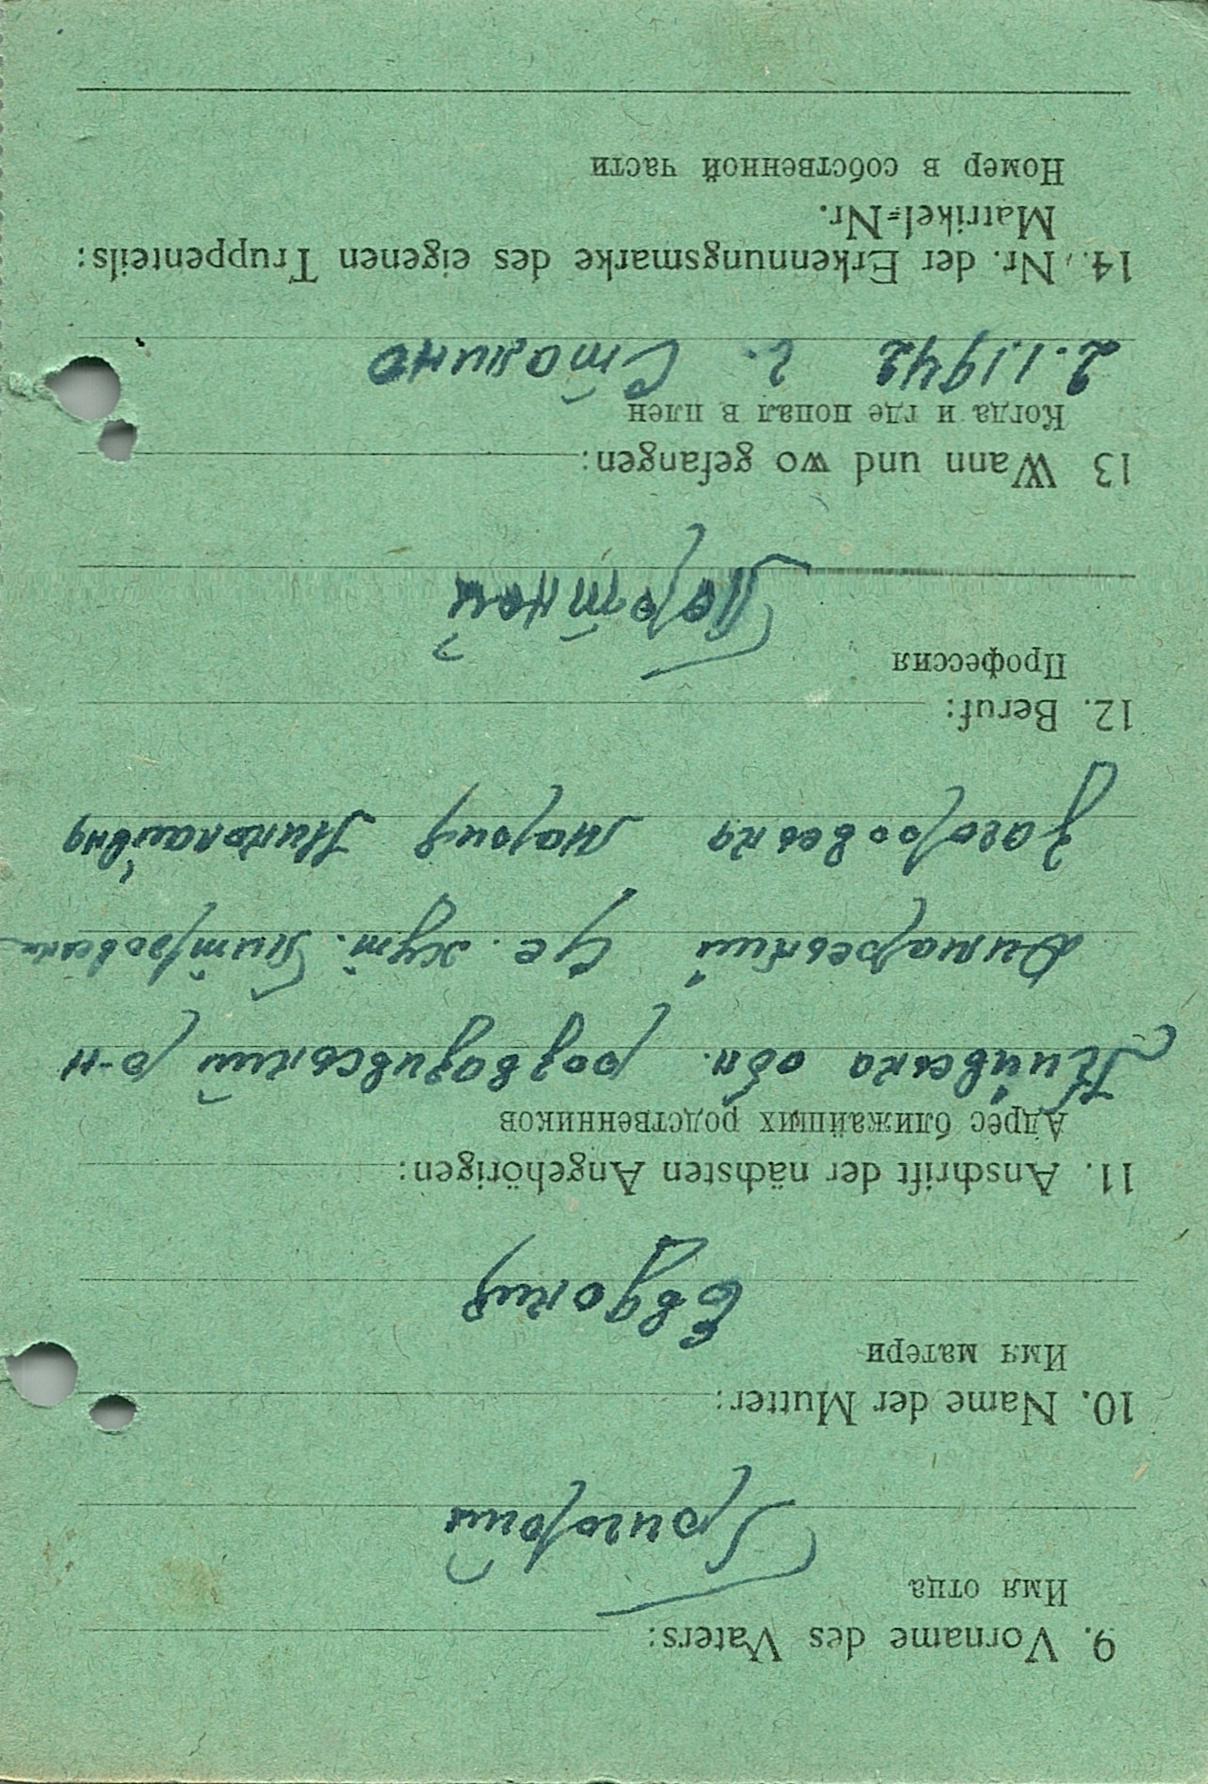 9. Vorname des Vaters:
Имя отца
Григорий
10. Name der Mutter:
Имя матери
Евдокия
11. Anschrift der nächsten Angehörigen:
Адрес ближайших родственников
Київська обл. розважівський р-н
Димарський с/с. хут. Питровська
Загоровська Мария Николаївна
12. Beruf:
Профессия
Портной
13 Wann und wo gefangen:
Когда и где попал в плен
2.I.1942 г. Сталино
14. Nr. der Erkennungsmarke des eigenen Truppenteils:
Matrikel-Nr.
Номер в собственной части